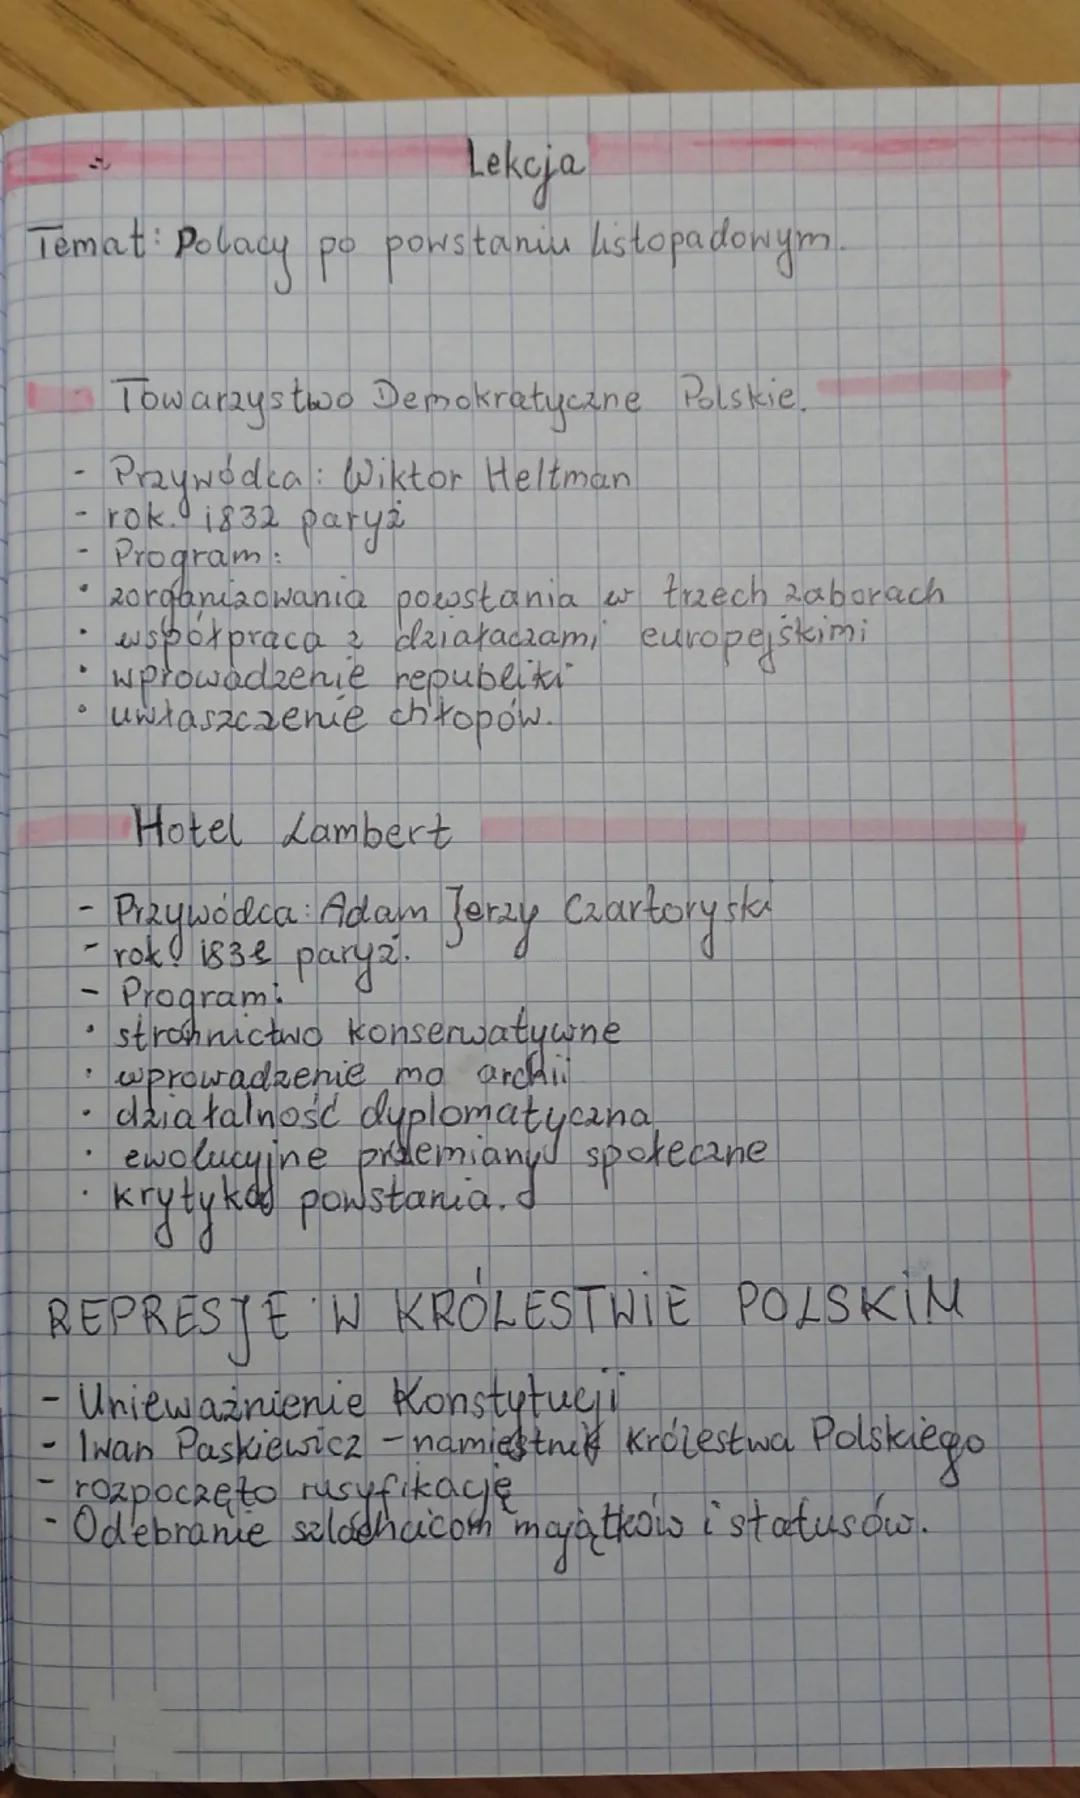 Lekcja
Temat: Polacy po powstaniu listopadowym.
Towarzystwo Demokratyczne Polskie.
- Przywódca: Wiktor Heltman
- rok. 1832 paryż
- Program:
• zorganizowania powstania w trzech zaborach
• współpraca z działaczami europejśkimi
• wprowadzenie republiki
• uwłaszczenie chłopów.
Hotel Lambert
- Przywódca: Adam Jerzy Czartoryski
- rok. paryż.
- Program:
• stronnictwo konserwatywne
• wprowadzenie mo archii
• działalność dyplomatyczna
• ewolucyjne przemiany społeczne
• krytyka powstania.
REPRESJE W KRÓLESTWIE POLSKIM
- Unieważnienie Konstytucji
- Iwan Paskiewicz - namiestnik Królestwa Polskiego
- rozpoczęto rusyfikację
- Odebranie majątków i statusów.